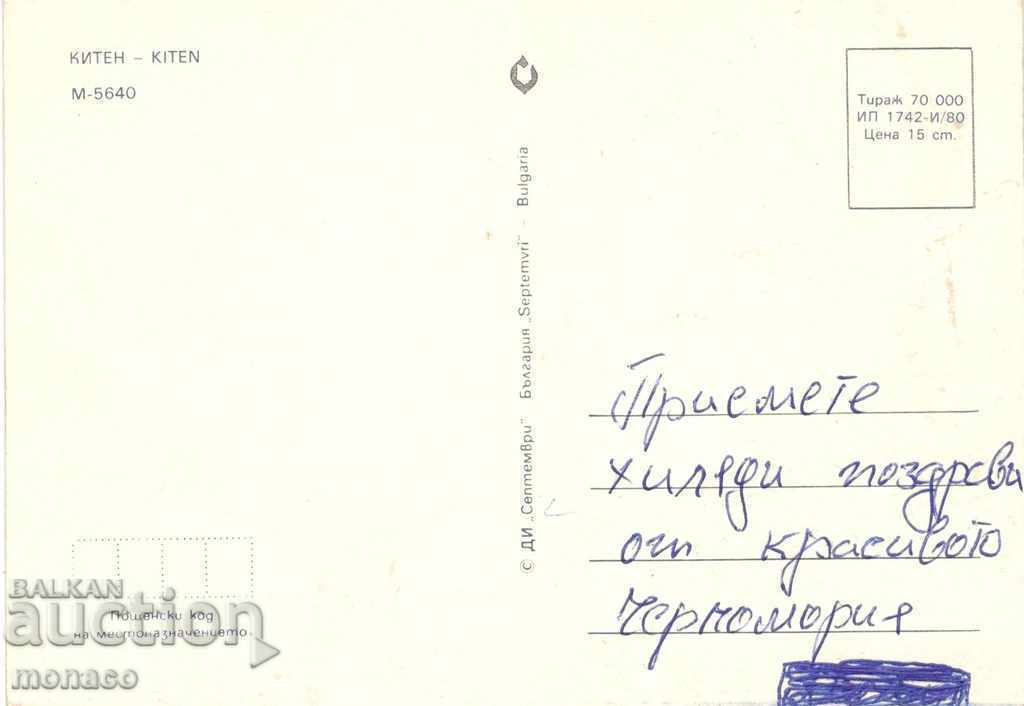 КИТЕН – KITEN
М-5640
Тираж 70 000
ИП 1742-И/80
Цена 15 ст.
© ДИ „Септември" България „Septemvri" – Bulgaria
Приемете
хиляди поздрави
от красивото
Черномория
Пощенски код
на местоназначението
BALKAN
auction
monaco